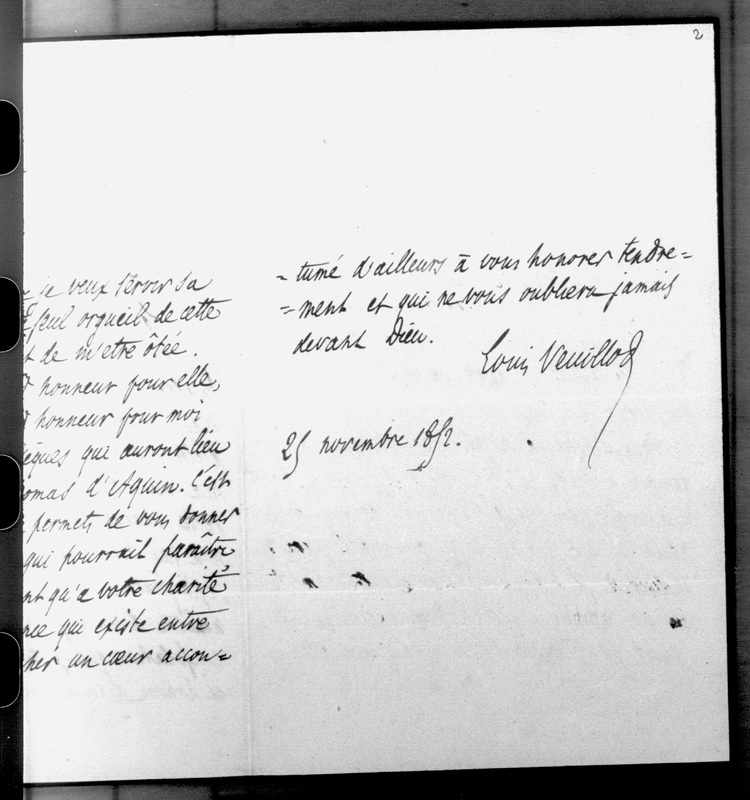 2
je veux servir sa
seul orgueil de cette
de m'etre ôtée.
honneur pour elle,
honneur pour moi
èques qui auront lieu
omas d'Aquin. C'est
permets de vous donner
qui pourrait paraître
nt qu'a votre charité
nce qui existe entre
cher un cœur accou=
=tumé d'ailleurs à vous honorer tendre=
=ment et qui ne vous oubliera jamais
devant Dieu.
Louis Veuillot
25 novembre 1852.